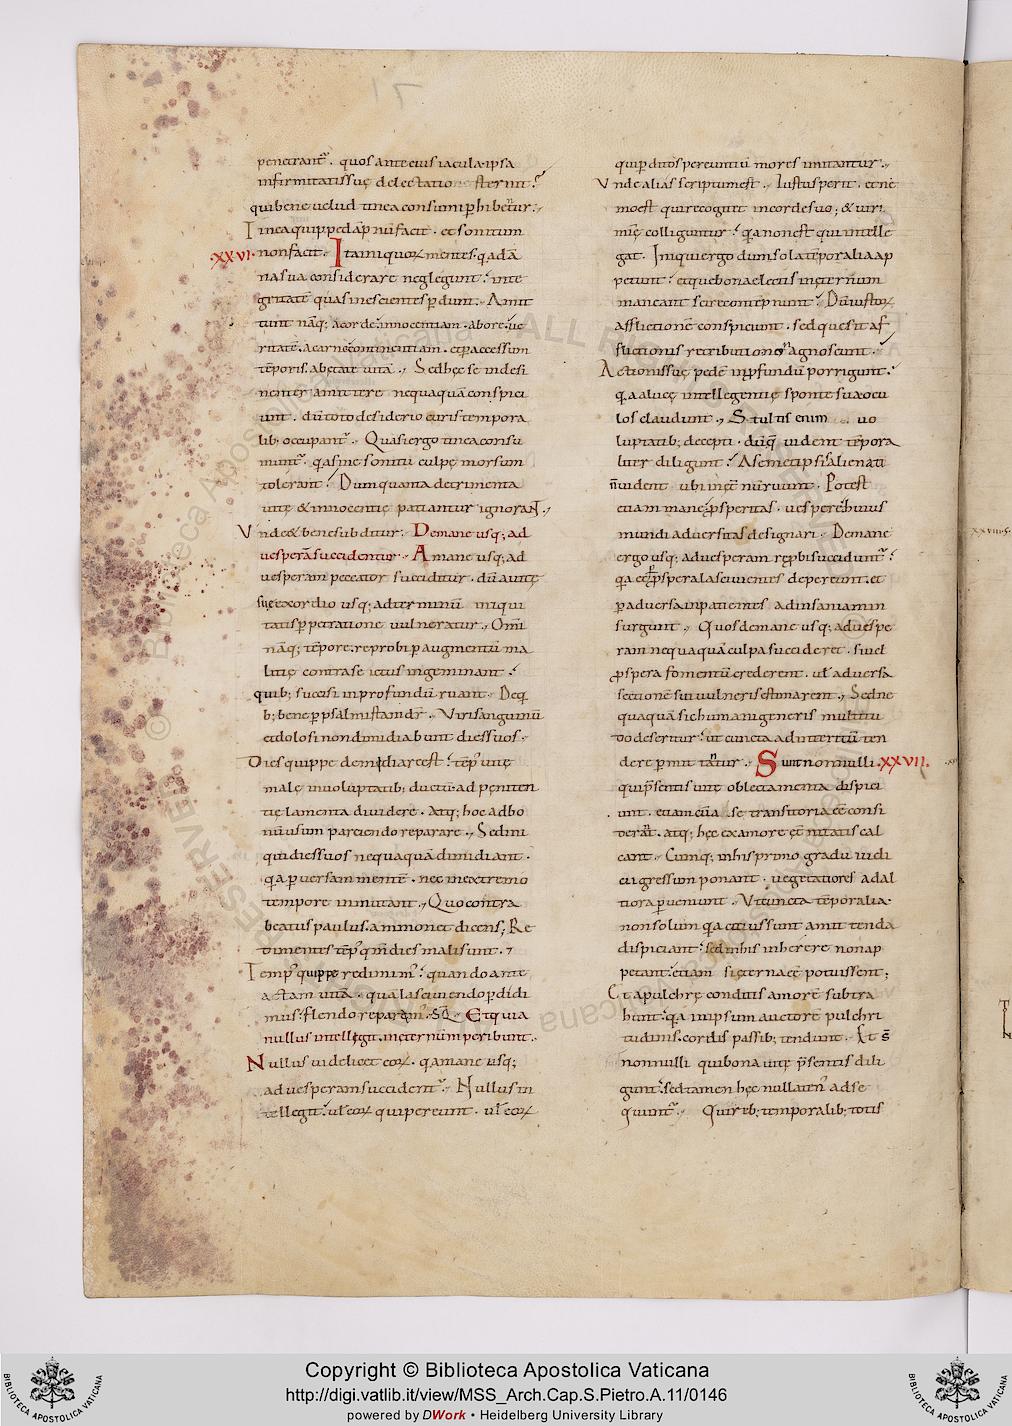 penetrant̃. quos ante eius iacula. ipsa
infirmitatis suę delectatio sternit.
qui bene velud tinea consumi ꝑhibetur.
Tinea quippe dãpnũ facit. et sonitum
·XXVI· non facit. Ita iniquoꝝ mentes. q̣a dã
na sua considerare neglegunt. inte
gritatẽ quasi nescientes ꝑdunt. Amit
tunt nãq; a corde innocentiam. ab ore ve
ritatẽ. a carne continentiam. et ꝑ accessum
tẽporis. ab ętate vitã. Sed hęc se indesi
nenter amittere nequaquã conspici
unt. dũ toto desiderio curis tempora
lib; occupant̃. Quasi ergo tinea consu
munt̃. q̣a sine sonitu culpę morsum
tolerant. Dum quanta detrimenta
vitę & innocentię patiantur ignorant.
Vnde & bene subditur. De mane usq; ad
vesperã succidentur. A mane usq; ad
vesperam peccator succiditur. dũ a vitę
suę exordio usq; ad terminũ iniqui
tatis ꝑpetratione vulneratur. Omi
nãq; tẽpore. reprobi ꝑ augmentũ ma
litię contra se ictus ingeminant.
quib; succisi in profundũ ruant. De q
b; bene ꝑ psalmistam dr̃. Viri sanguinũ
et dolosi non dimidiabunt dies suos.
Dies quippe demidiare est. tẽp̾ vitę
malę in voluptatib; ductũ. ad peniten
tię lamenta dividere. Atq; hoc ad bo
nũ usum parciendo reparare. Sed ini
qui dies suos nequaquã dimidiant.
q̣a ꝑversam mentẽ. nec in extremo
tempore inmutant. Quo contra
beatus paulus. ammonet dicens; Re
dimentes tẽp̾ qm̃ dies mali sunt.
Temp̾ quippe redimim̾. quando ante
actam vitã. quã lasciviendo ꝑdidi
mus. flendo reparam̾. SQ̃. Et quia
nullus intellegit. in eternum peribunt.
Nullus videlicet eoꝝ. q̣ a mane usq;
ad vesperam succident̃. Nullus in
tellegit. vel eoꝝ qui pereunt. vel eoꝝ
qui ꝑditos pereuntiũ mores imitantur.
Vnde alias scriptum est. Iustus perit. et nẽ
mo est qui recogitet in corde suo; & viri
mię colliguntur. q̣a non est qui intelle
gat. Iniqui ergo dum sola tẽporalia ap
petunt. et que bona electis in ęternum
maneant scire contẽpnunt. Dũ iustoꝝ
afflictionẽ conspiciunt. sed que sit af
flictionis retributio non agnoscunt.
Actionis suę pedẽ in ꝓfundũ porrigunt.
q̣a a luce intellegentię sponte sua ocu
los claudunt. Stultis enim vo
luptatib; decepti. dũq; vident tẽpora
liter diligunt. A semetipsis alienati
ñ vident ubi in ęt̃nũ ruunt. Potest
etiam mane ꝓsperitas. vesꝑe ꝟ huius
mundi adversitas designari. De mane
ergo usq; ad vesperam reprobi succidunt̃.
q̣a et ꝓspera lascivientes depereunt. et
ꝑ adversa inpatientes ad insaniam in
surgunt. Quos de mane usq; ad vespe
ram nequaquã culpa succideret. si vel
ꝓspera fomentũ crederent. vel adversa
sectionẽ sui vulneris estimarent. Sed ne
quaquã sic humani generis multitu
do deseritur. ut cuncta ad interitũ ten
dere ꝑmittantur. Sunt nonnulli. XXVII.
qui p̃sentis vitę oblectamenta dispici
unt. et iam cũ a se transitoria eẽ consi
derãt. atq; hęc ex amore ęt̃nitatis cal
cant. Cumq; in his primo gradu iudi
cii gressum ponant. vegetatiores ad al
tiora ꝑveniunt. Vt cuncta tẽporalia.
non solum q̣a citius sunt amittenda
dispiciant. sed in his inherere non ap
petant. etiam si ęterna eẽ potuissent;
Et a pulchrę conditis amorẽ subtra
hunt. q̣a in ipsum auctorẽ pulchri
tudinis. cordis passib; tendunt. Et s̃
nonnulli qui bona vitę p̃sentis dili
gunt. sed tamen hęc nullaten̾ adse
quunt̃. Qui reb; temporalib; totis